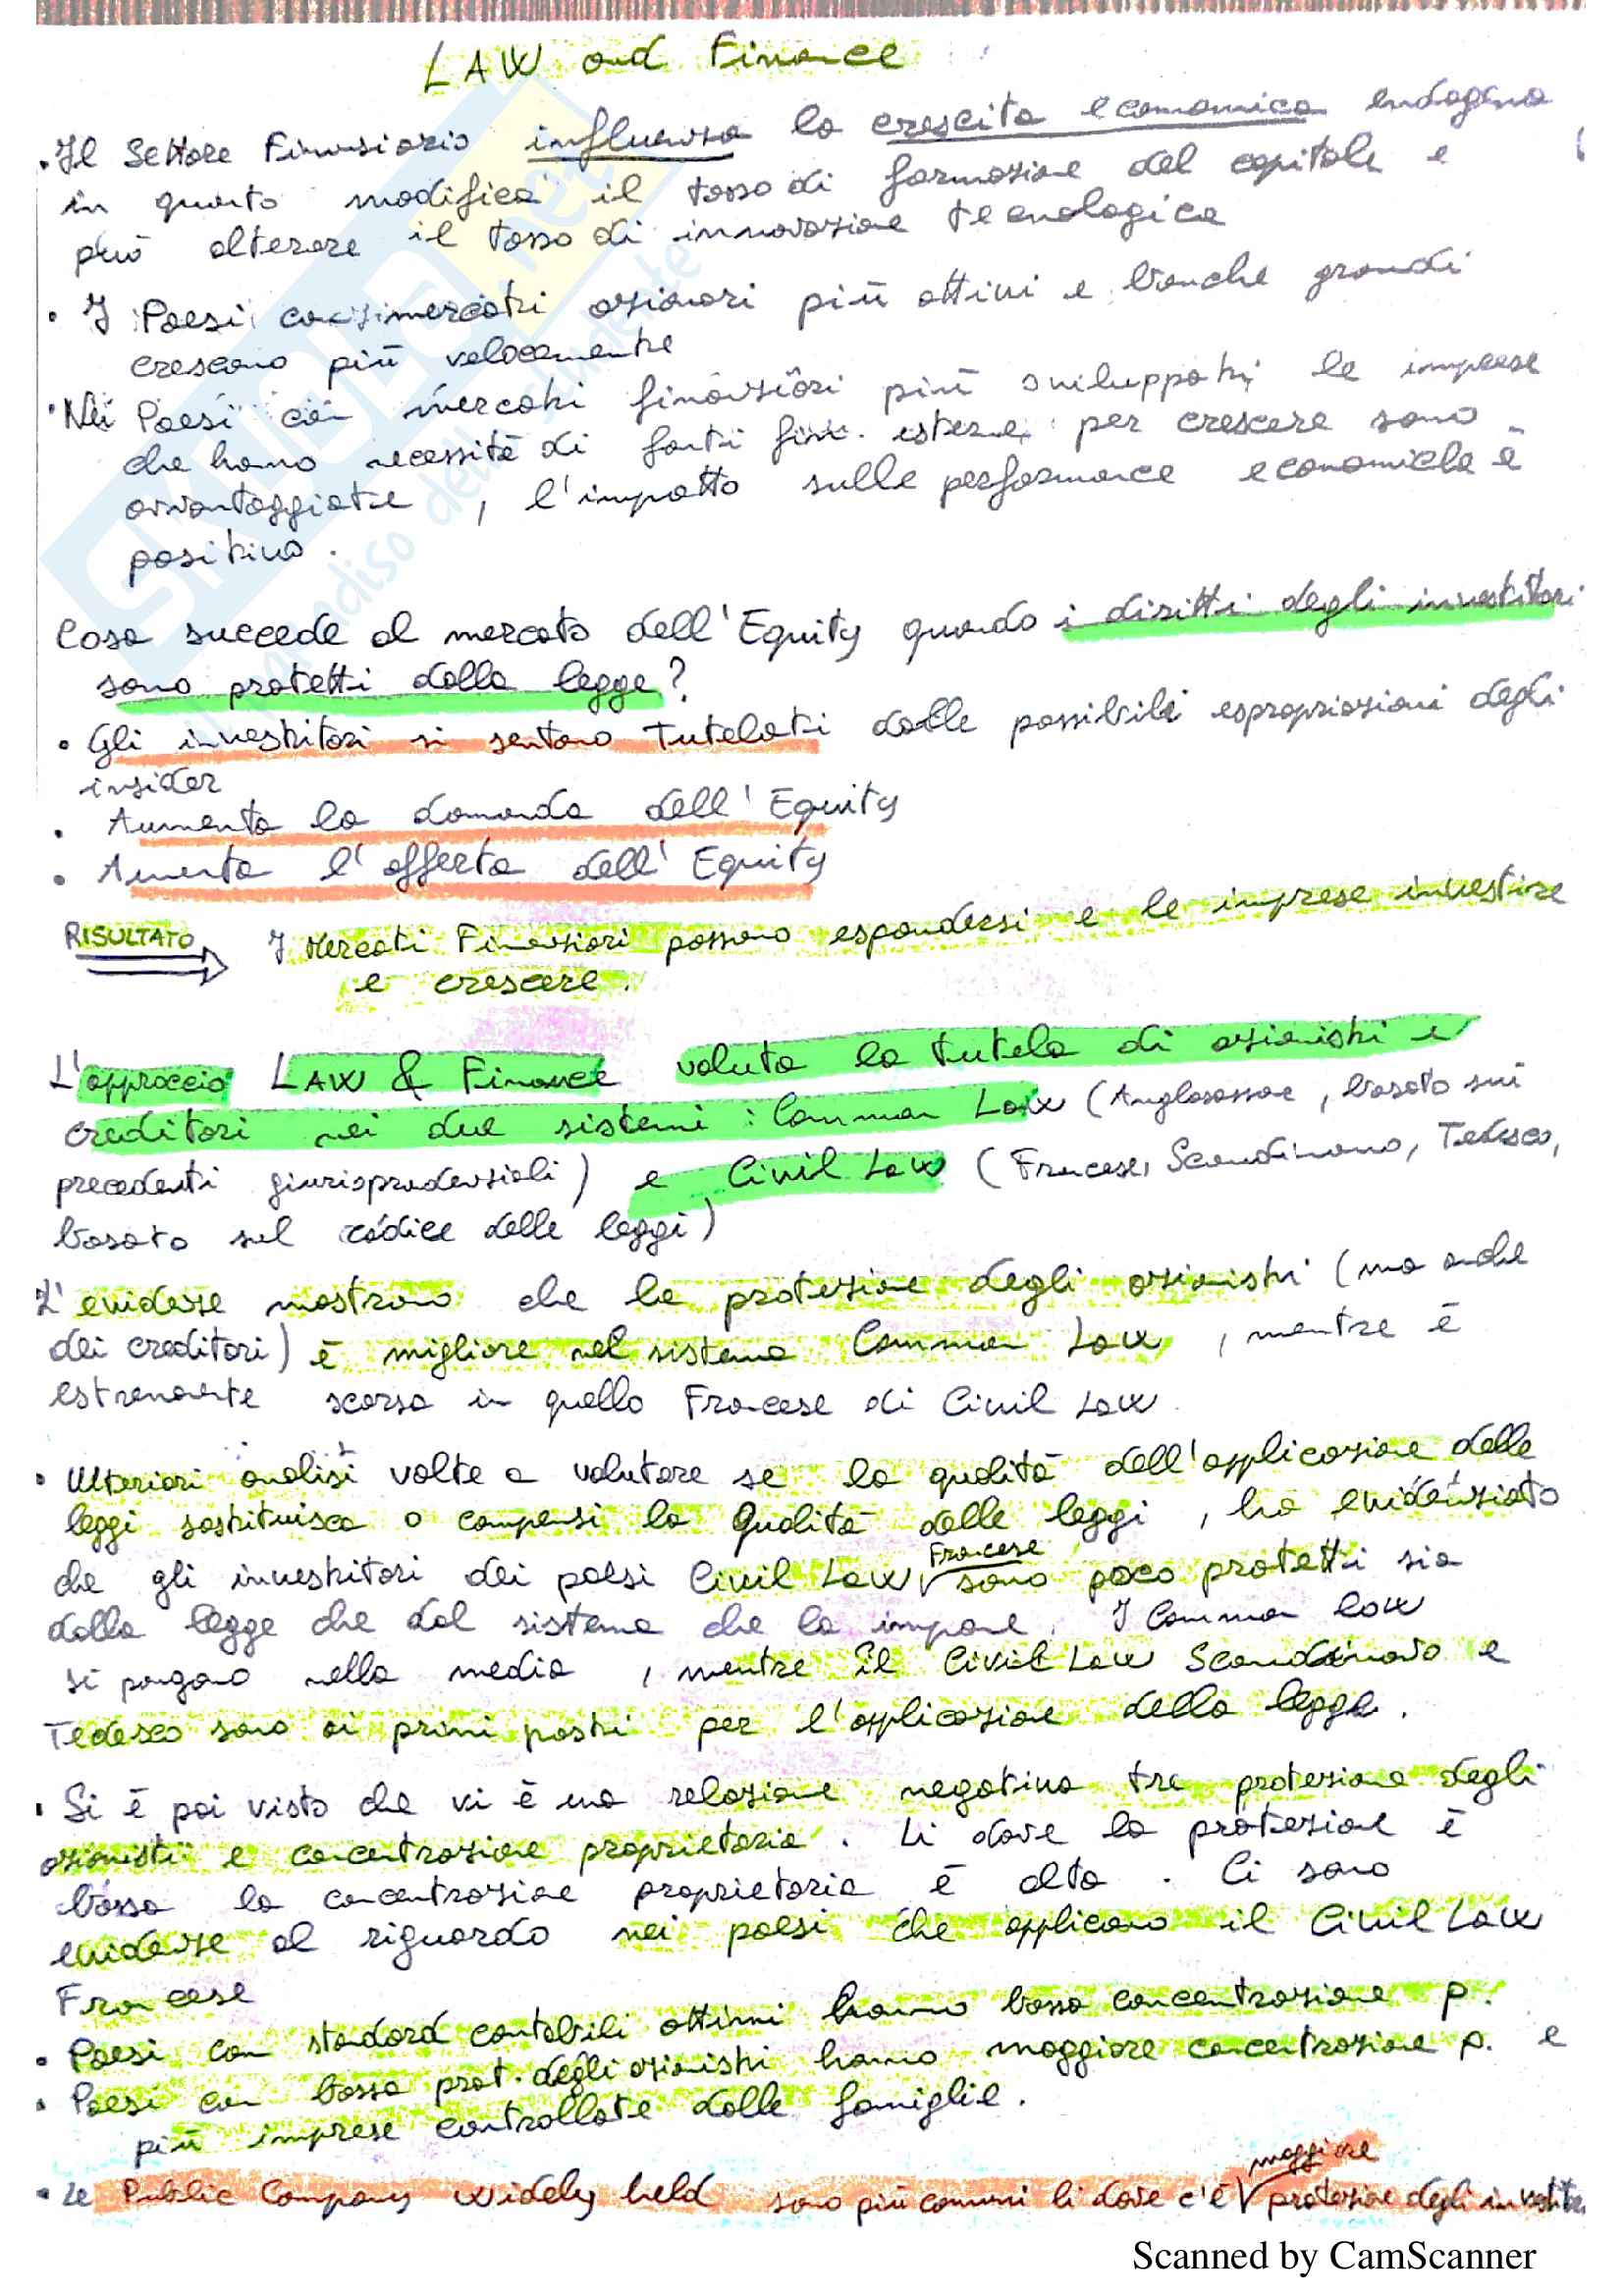 LAW and Finance
• Il Settore Finanziario influenza la crescita economica endogena
in quanto modifica il tasso di formazione del capitale e
può alterare il tasso di innovazione tecnologica
• I Paesi con mercati azionari più attivi e banche grandi
crescono più velocemente
• Nei Paesi con mercati finanziari più sviluppati, le imprese
che hanno necessità di fonti fin. esterne per crescere sono
avvantaggiate, l'impatto sulle performance economiche è
positivo.
Cosa succede al mercato dell'Equity quando i diritti degli investitori
sono protetti dalla legge?
• Gli investitori si sentono Tutelati dalle possibili espropriazioni degli
insider
• Aumenta la domanda dell'Equity
• Aumenta l'offerta dell'Equity
RISULTATO I Mercati Finanziari possono espandersi e le imprese investire
e crescere.
L'approccio LAW & Finance valuta la tutela di azionisti e
creditori nei due sistemi: Common Law (Anglosassone, basato sui
precedenti giurisprudenziali) e Civil Law (Francese, Scandinavo, Tedesco,
basato sul codice delle leggi)
L'evidenze mostrano che la protezione degli azionisti (ma anche
dei creditori) è migliore nel sistema Common Law, mentre è
estremamente scarsa in quello Francese di Civil Law.
• Ulteriori analisi volte a valutare se la qualità dell'applicazione delle
leggi sostituisca o compensi la qualità delle leggi, ha evidenziato
che gli investitori dei paesi Civil Law Francese sono poco protetti sia
dalla legge che dal sistema che la impone. I Common law
si pongono nella media, mentre il Civil Law Scandinavo e
Tedesco sono ai primi posti per l'applicazione della legge.
• Si è poi visto che vi è una relazione negativa tra protezione degli
azionisti e concentrazione proprietaria. Li dove la protezione è
bassa la concentrazione proprietaria è alta. Ci sono
evidenze al riguardo nei paesi che applicano il Civil Law
Francese
• Paesi con standard contabili ottimi hanno bassa concentrazione p.
• Paesi con bassa prot. degli azionisti hanno maggiore concentrazione p. e
più imprese controllate dalle famiglie.
• Le Public Company widely held sono più comuni li dove c'è maggiore protezione degli investitori
Scanned by CamScanner